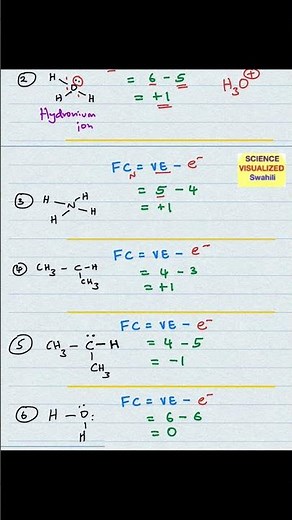 ② H :O: H H
= 6 – 5
= +1
H₃O⊕
Hydronium
ion
SCIENCE
VISUALIZED
Swahili
③ H N H H H
FC_N = VE – e⁻
= 5 – 4
= +1
④ CH₃ – C – H
CH₃
FC = VE – e⁻
= 4 – 3
= +1
⑤ CH₃ – C̈ – H
CH₃
FC = VE – e⁻
= 4 – 5
= –1
⑥ H – Ö:
H
FC = VE – e⁻
= 6 – 6
= 0